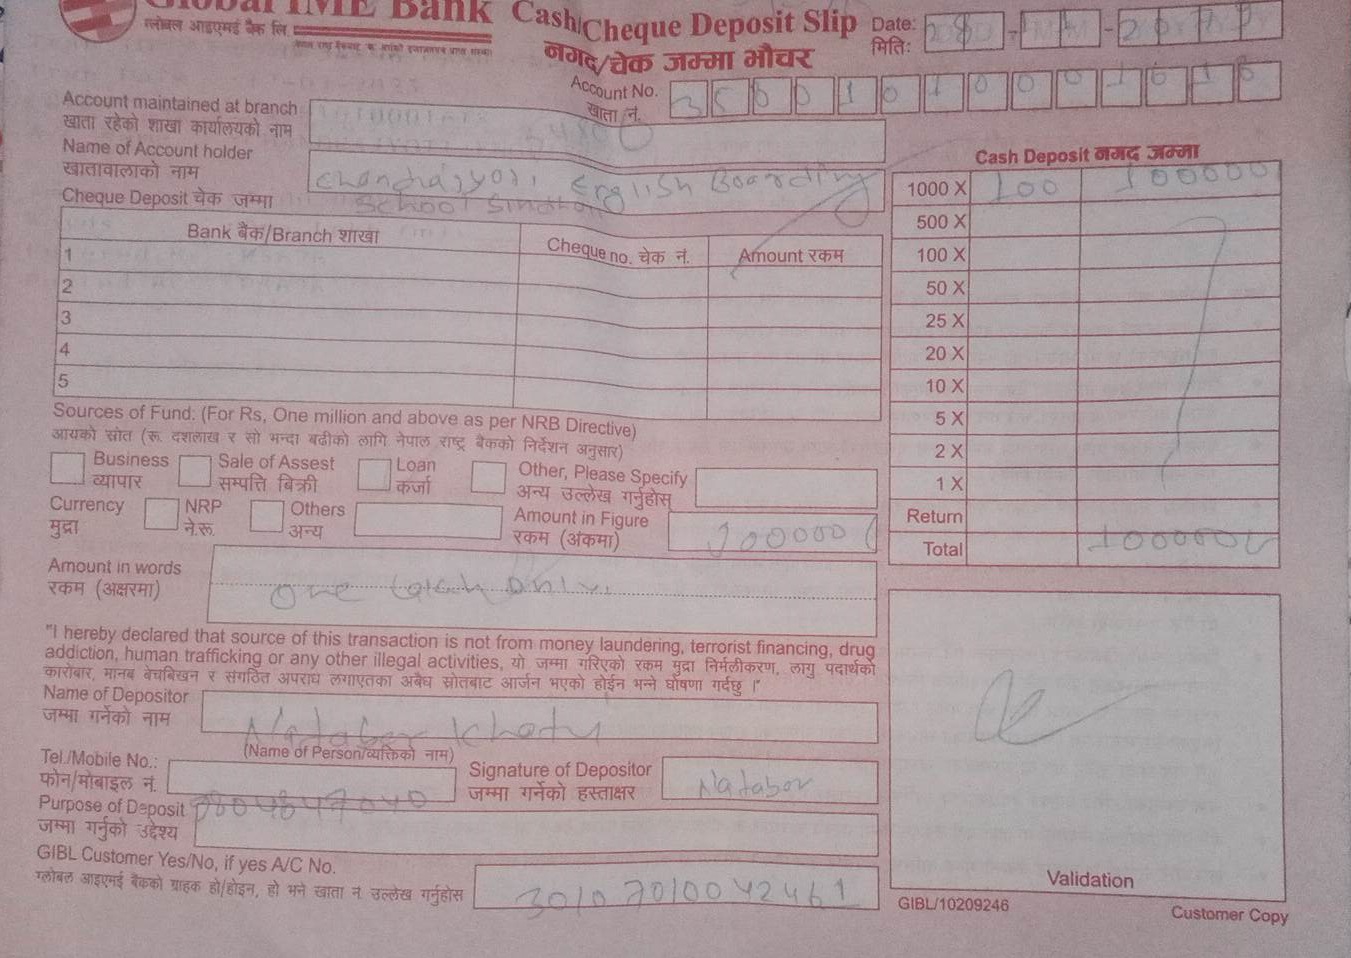 Global IME Bank Cash/Cheque Deposit Slip
ग्लोबल आइएमई बैंक लि.
नगद/चेक जम्मा भौचर
Date:
मिति:
Account No.
खाता नं.
Account maintained at branch
खाता रहेको शाखा कार्यालयको नाम
Name of Account holder
खातावालाको नाम
English Boarding
School
Cheque Deposit चेक जम्मा
Bank बैंक/Branch शाखा Cheque no. चेक नं. Amount रकम
1
2
3
4
5
Cash Deposit नगद जम्मा
1000 X 100 100000
500 X
100 X
50 X
25 X
20 X
10 X
5 X
2 X
1 X
Return
Total
Sources of Fund: (For Rs, One million and above as per NRB Directive)
आयको स्रोत (रू. दशलाख र सो भन्दा बढीको लागि नेपाल राष्ट्र बैंकको निर्देशन अनुसार)
Business Sale of Assest Loan Other, Please Specify
व्यापार सम्पत्ति बिक्री कर्जा अन्य उल्लेख गर्नुहोस्
Currency NRP Others Amount in Figure
मुद्रा ने.रू. अन्य रकम (अंकमा)
100000
Amount in words
रकम (अक्षरमा)
one lakh only.
"I hereby declared that source of this transaction is not from money laundering, terrorist financing, drug
addiction, human trafficking or any other illegal activities, यो जम्मा गरिएको रकम मुद्रा निर्मलीकरण, लागु पदार्थको
कारोबार, मानब बेचबिखन र संगठित अपराध लगाएतका अबैध स्रोतबाट आर्जन भएको होईन भन्ने घोषणा गर्दछु ।"
Name of Depositor
जम्मा गर्नेको नाम
Natabar
(Name of Person/व्यक्तिको नाम)
Tel./Mobile No.:
फोन/मोबाइल नं.
Signature of Depositor
जम्मा गर्नेको हस्ताक्षर
Natabar
Purpose of Deposit
जम्मा गर्नुको उद्देश्य
GIBL Customer Yes/No, if yes A/C No.
ग्लोबल आइएमई बैंकको ग्राहक हो/होइन, हो भने खाता नं उल्लेख गर्नुहोस
30107010042461
Validation
GIBL/10209246
Customer Copy